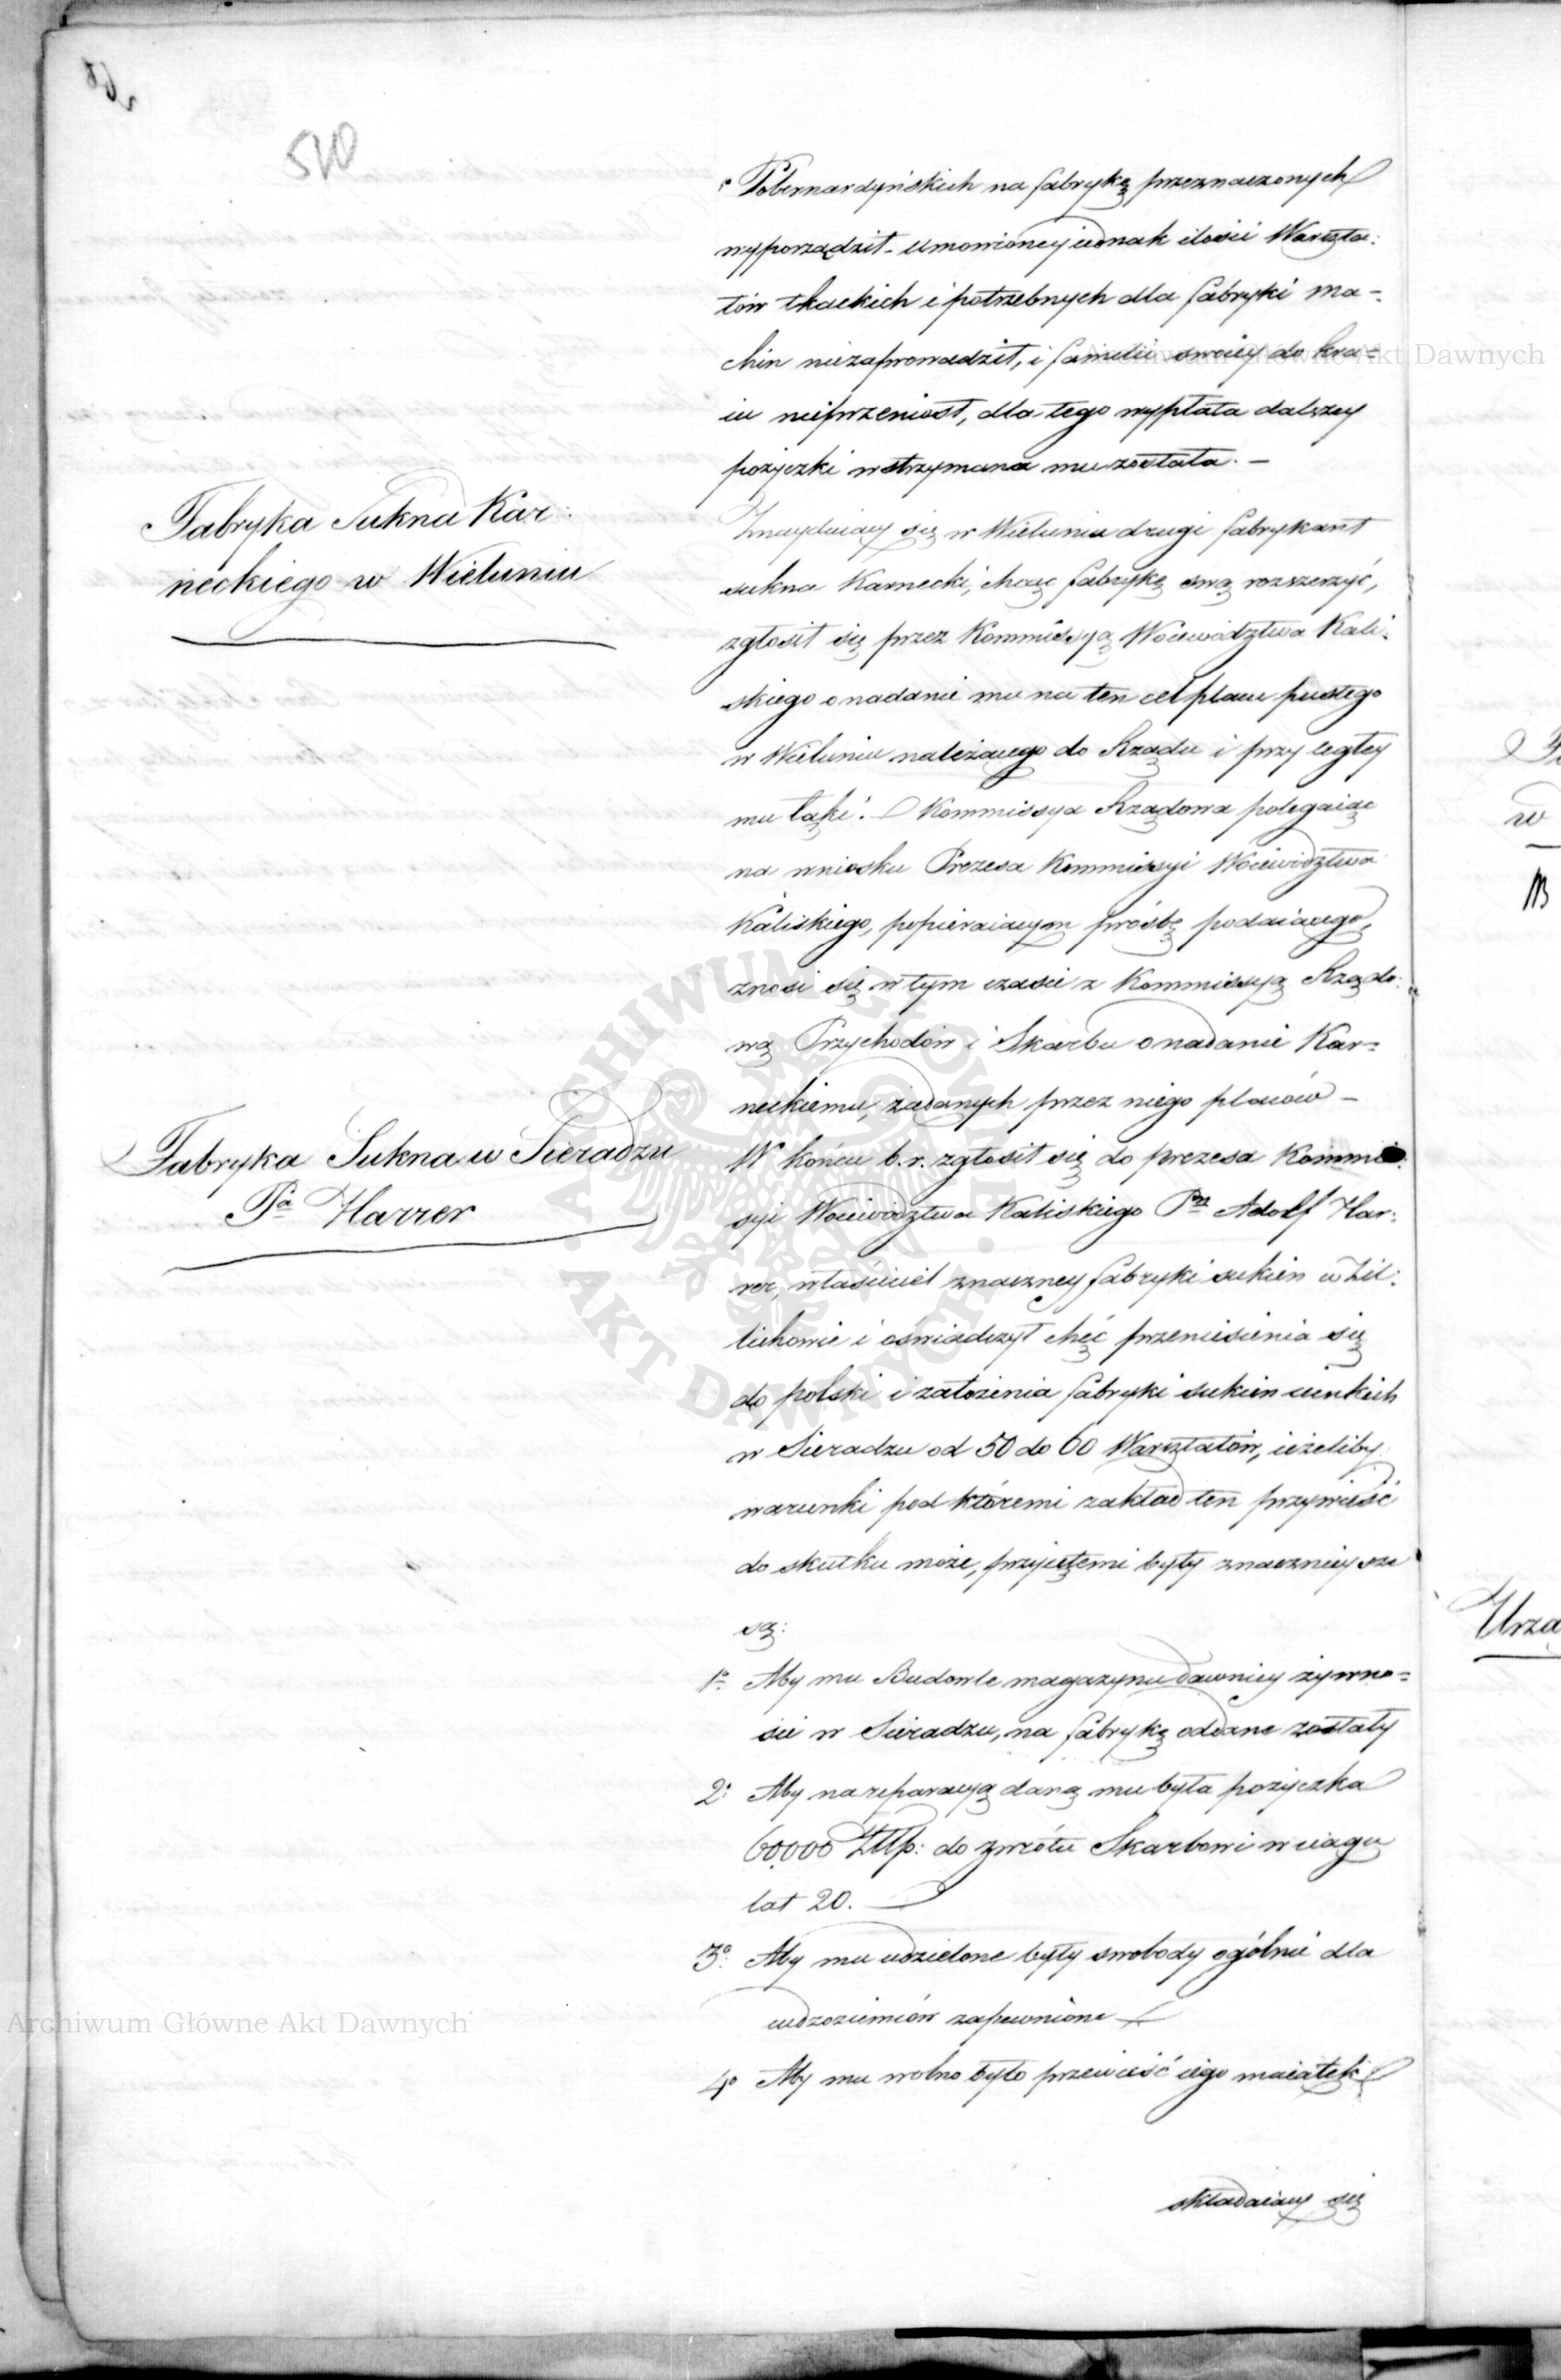 510
Pobernardyńskich na fabrykę przeznaczonych
wyporządził. umowioney iednak ilości Warszta:
tów tkackich i potrzebnych dla fabryki ma-
chin niezaprowadził, i familii swoiey do kra-
iu nieprzeniosł, dla tego wypłata dalszey
pożyczki wstrzymana mu została. -
Fabryka Sukna Kar:
neckiego w Wieluniu
Znayduiący się w Wieluniu drugi fabrykant
sukna Karnecki, chcąc fabrykę swą rozszerzyć,
zgłosił się przez Kommissyą Woiewodztwa Kali:
skiego o nadanie mu na ten cel placu pustego
w Wieluniu należącego do Rządu i przyległey
mu łąki. Kommissya Rządowa polegaiąc
na wniosku Prezesa Kommissyi Woiewodztwa
Kaliskiego, popieraiącym prośbę podaiącego,
znosi się w tym czasie z Kommissyą Rządo:
wą Przychodów i Skarbu o nadanie Kar-
neckiemu, żądanych przez niego placów -
Fabryka Sukna w Sieradzu
Pa Harrer
W końcu b. r. zgłosił się do prezesa Kommis:
syi Woiewodztwa Kaliskiego Pn Adolf Har:
rer, właściciel znaczney fabryki sukien w Zil:
lichowie i oświadczył chęć przeniesienia się
do polski i założenia fabryki sukien cienkich
w Sieradzu od 50 do 60 Warsztatów, ieżeliby
warunki pod któremi zakład ten przywieść
do skutku może, przyiętemi były znacznieysze
są:
1o Aby mu Budowle magazynu dawniey żywno-
ści w Sieradzu, na fabrykę oddane zostały
2o Aby na reparacyą daną mu była pożyczka
60,000 Złłp: do zwrótu Skarbowi w ciągu
lat 20.
3o Aby mu udzielone były swobody ogólnie dla
cudzoziemców zapewnione
4o Aby mu wolno było przewieść iego maiątek
składaiący się
Archiwum Główne Akt Dawnych
Archiwum Główne Akt Dawnych
ARCHIWUM GŁÓWNE AKT DAWNYCH
w
Urzą